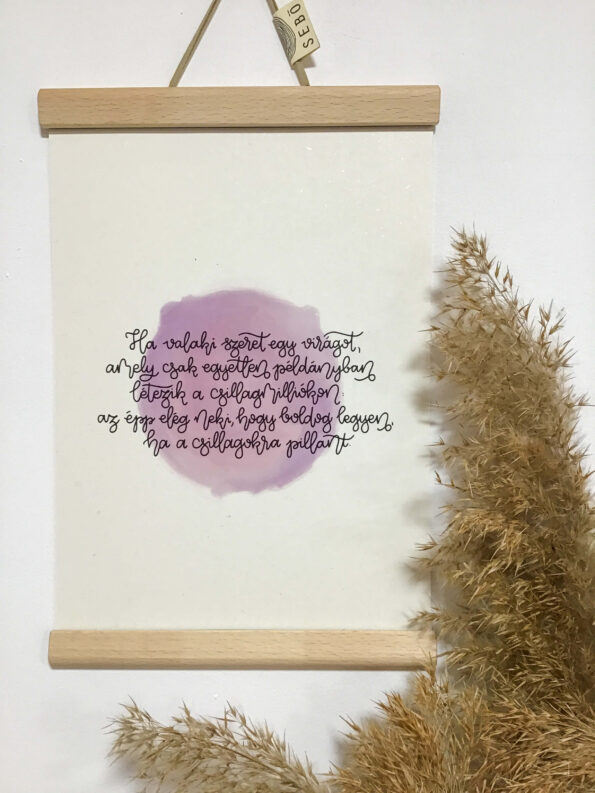 SEBŐ
Ha valaki szeret egy virágot,
amely csak egyetlen példányban
létezik a csillagmilliókon:
az épp elég neki, hogy boldog legyen,
ha a csillagokra pillant